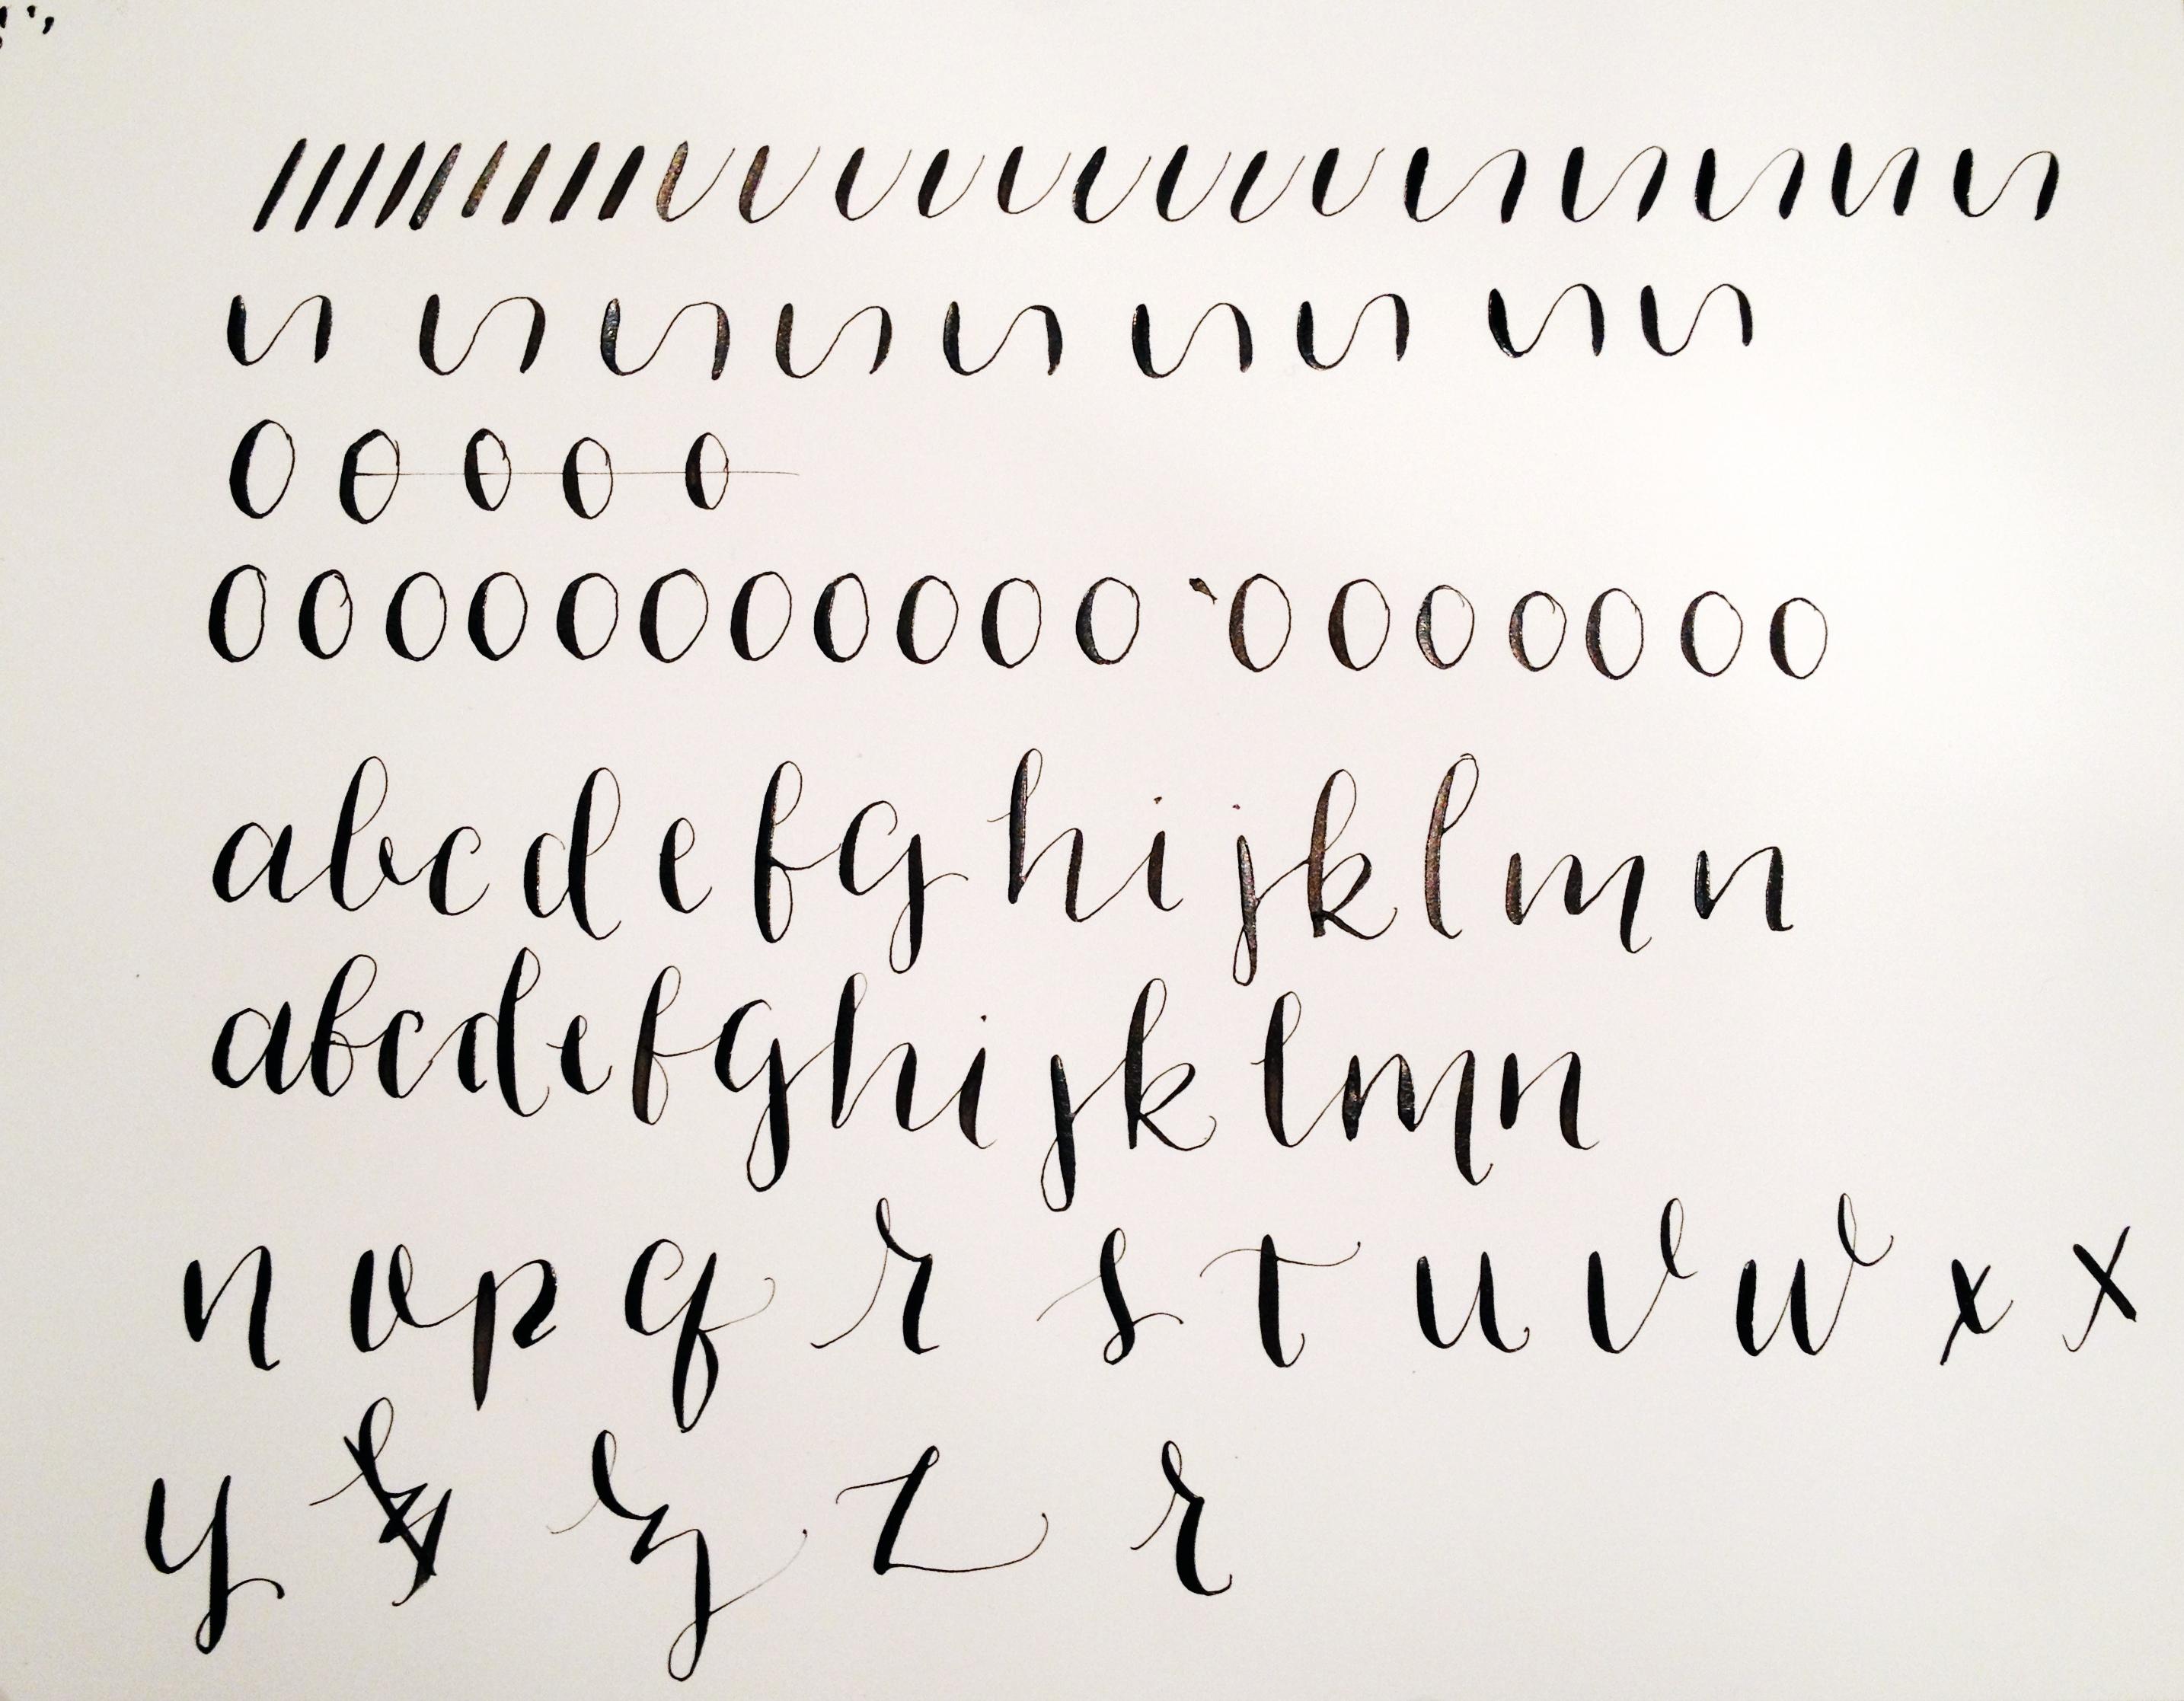 abcdefghijklmn
abcdefghijklmn
n o p q r s t u v w x x
y z z r